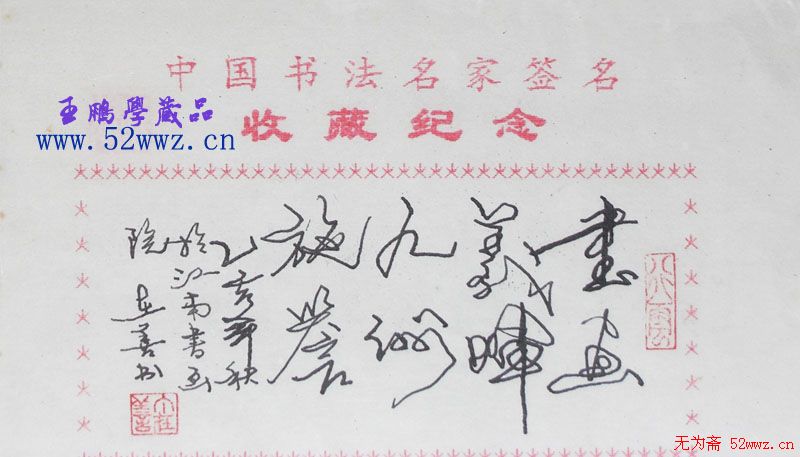 中国书法名家签名
王鵬學藏品
收藏纪念
www.52wwz.cn
書画
九州
乙亥年秋
於江南書画
院
在善书
无为斋 52wwz.cn